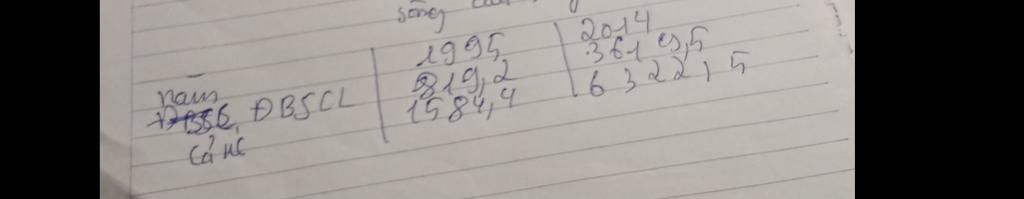 sông
năm 1995 2014
ĐBSCL 819,2 3619,5
Cả nc 1584,4 6322,5